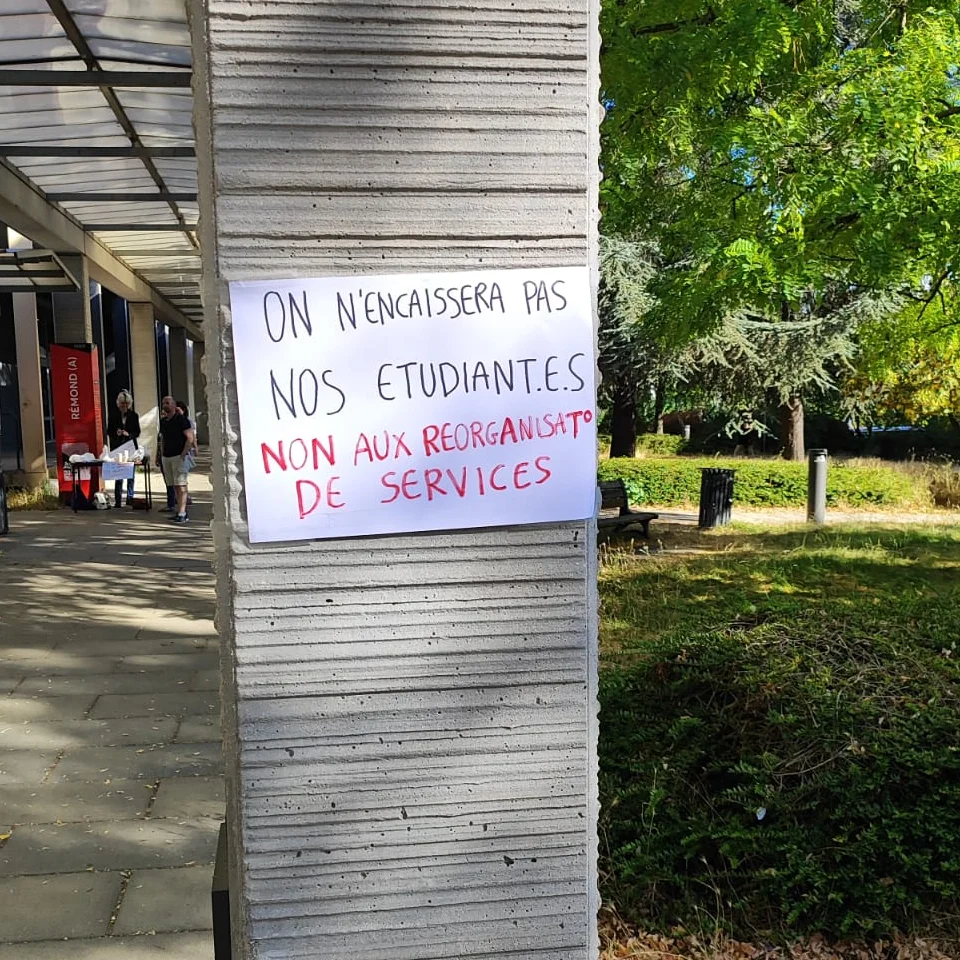 ON N'ENCAISSERA PAS
NOS ETUDIANT.E.S
NON AUX REORGANISAT°
DE SERVICES
RÉMOND (A)